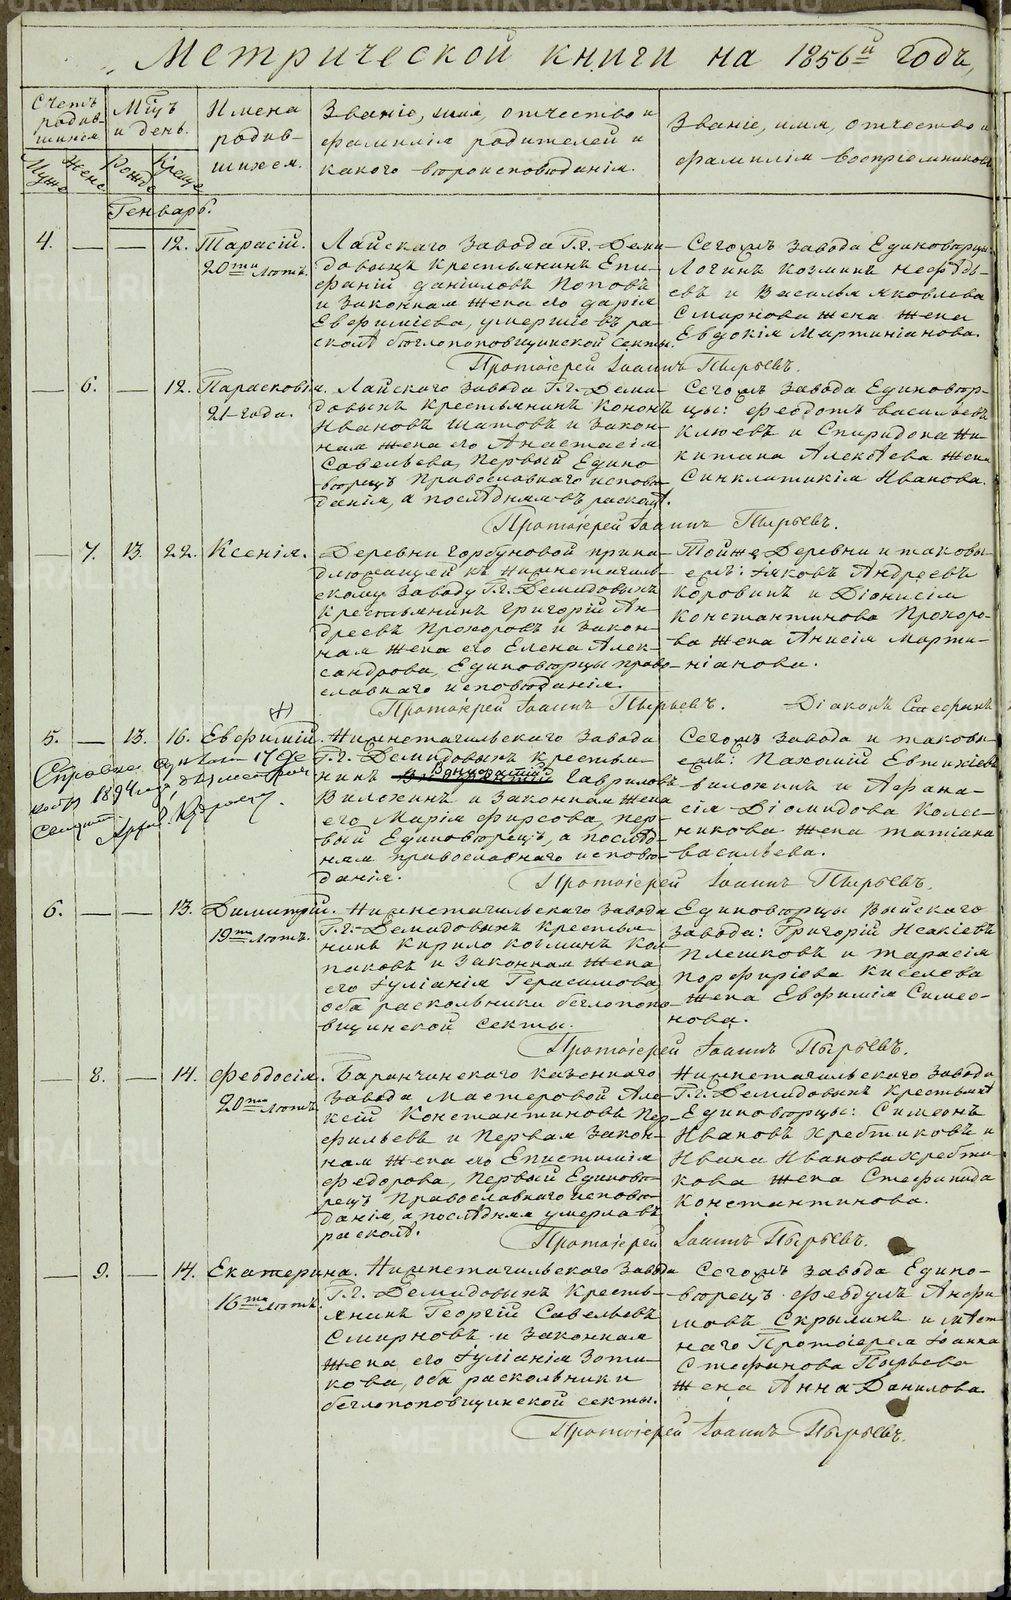 Метрической книги на 1856й годъ,
Счетъ родив-шихся
Мцъ и день.
Имена родив-шихся.
Званіе, имя, отчество и фамилія родителей и какого вѣроисповѣданія.
Званіе, имя, отчество и фамилія воспріемниковъ
Муже Жене Рожде Креще
Генварь.
4. — — 12. Тарасій.
20ти лѣтъ.
Лайскаго завода Г.г. Деми-
довыхъ крестьянинъ Епи-
фаній Даніиловъ Поповъ
и законная жена его Дарія
Евфиміева, умершіе въ ра-
сколѣ беглопоповщинской секты.
Сегожъ завода Единоверцы
Логинъ Козминъ Нефедь-
евъ и Василья Яковлева
Смирнова жена жена
Евдокія Мартиніанова.
Протоіерей Іоаннъ Пырьевъ.
— 6. — 12. Парасковія.
21 года.
Лайскаго завода Г.г. Деми-
довыхъ крестьянинъ Кононъ
Ивановъ Шатовъ и закон-
ная жена его Анастасія
Савельева, первый Едино-
верецъ православнаго исповѣ-
данія, а послѣдняя въ расколѣ.
Сегожъ завода Единовѣр-
цы: Феодотъ Васильевъ
Клюевъ и Спиридона Ни-
китина Алексѣева жена
Синклитикія Иванова.
Протоіерей Іоаннъ Пырьевъ.
— 7. 13. 22. Ксенія.
Деревни Горбуновой прина-
длежащей къ Нижнетагиль-
скому заводу Г.г. Демидовыхъ
крестьянинъ Григорій Ан-
дреевъ Прохоровъ и закон-
ная жена его Елена Алек-
сандрова, Единовѣрцы право-
славнаго исповѣданія.
Тойже Деревни и таковы-
ежъ: Іяковъ Андреевъ
Коровинъ и Діонисія
Константинова Прохоро-
ва жена Анисія Марти-
ніанова.
Протоіерей Іоаннъ Пырьевъ. Діаконъ Стефанъ
5. — 13. 16. Евфимій.
Нижнетагильскаго завода
Г.г. Демидовыхъ крестья-
нинъ Гавриловъ
Виложинъ и законная жена
его Марія Фирсова, пер-
вый Единовѣрецъ, а послѣд-
няя православнаго исповѣ-
данія.
Сегожъ завода и таковы-
ежъ: Пахомій Евтихіевъ
Виложинъ и Афана-
сія Діомидова Колес-
никова жена Татіана
Васильева.
Справка
1894 года,
Протоіерей Іоаннъ Пырьевъ.
6. — — 13. Димитрій.
19ти лѣтъ.
Нижнетагильскаго завода
Г.г. Демидовыхъ крестья-
нинъ Кирило Козминъ Кол-
паковъ и законная жена
его Іуліанія Герасимова,
оба раскольники беглопопо-
вщинской секты.
Единовѣрцы Выйскаго
завода: Григорій Исакіевъ
Плешковъ и Тарасія
Порфиріева Киселева
жена Евфимія Симео-
нова.
Протоіерей Іоаннъ Пырьевъ.
— 8. — 14. Феодосія.
20ти лѣтъ.
Баранчинскаго казеннаго
завода Мастеровой Але-
ксій Константиновъ Пер-
фильевъ и первая закон-
ная жена его Епистимія
Федорова, первый Единовѣ-
рецъ православнаго исповѣ-
данія, а послѣдняя умерла въ
расколѣ.
Нижнетагильскаго завода
Г.г. Демидовыхъ крестьяне
Единовѣрцы: Симеонъ
Ивановъ Хребтиковъ и
Ивана Иванова Хребти-
кова жена Стефанида
Константинова.
Протоіерей Іоаннъ Пырьевъ.
— 9. — 14. Екатерина.
16ти лѣтъ.
Нижнетагильскаго завода
Г.г. Демидовыхъ кресть-
янинъ Георгій Савельевъ
Смирновъ и законная
жена его Іуліанія Зоти-
кова, оба раскольники
беглопоповщинской секты.
Сегожъ завода Едино-
вѣрецъ Феодулъ Анфи-
мовъ Скрылинъ и мѣст-
наго Протоіерея Іоанна
Стефанова Пырьева
жена Анна Данилова.
Протоіерей Іоаннъ Пырьевъ.
METRIKI.GASO-URAL.RU